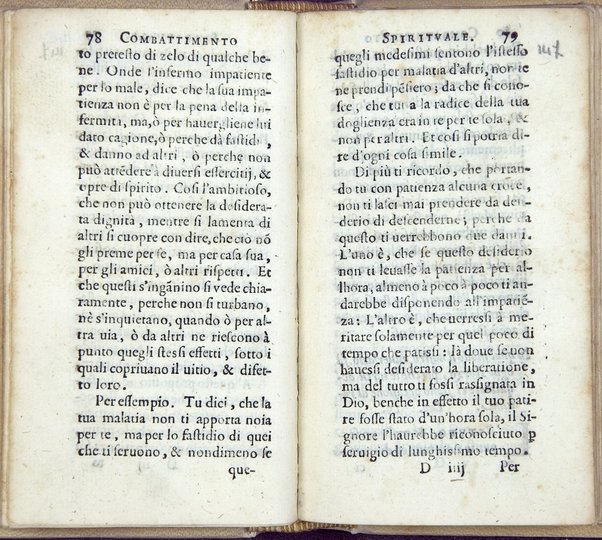 78 COMBATTIMENTO
to pretesto di zelo di qualche be-
ne. Onde l'infermo impatiente
per lo male, dice che la sua impa-
tienza non è per la pena della in-
fermità, ma, ò per hauergliene lui
dato cagione, ò perche dà fastidi,
& danno ad altri, ò perche non
può attēdere à diversi essercitij, &
opre di spirito. Così l'ambitioso,
che non può ottenere la desidera-
ta dignità, mentre si lamenta di
altri si cuopre con dire, che ciò nó
gli preme per se, ma per casa sua,
per gli amici, ò altri rispetti. Et
che questi s'ingánino si vede chia-
ramente, perche non si turbano,
nè s'inquietano, quando ò per al-
tra uia, ò da altri ne riescono à
punto quegli stessi effetti, sotto i
quali copriuano il uitio, & difet-
to loro.
Per essempio. Tu dici, che la
tua malatia non ti apporta noia
per te, ma per lo fastidio di quei
che ti seruono, & nondimeno se
que-
SPIRITVALE. 79
147
quegli medesimi sentono l'istesso
fastidio per malatia d'altri, non te
ne prendi pēsiero; da che si cono-
sce, che tutta la radice della tua
doglienza era in te per te sola, &
non per altri. Et così si potria di-
re d'ogni cosa simile.
Di più ti ricordo, che portan-
do tu con patienza alcuna croce,
non ti lasci mai prendere da desi-
derio di descenderne; perche da
questo ti uerrebbono due danni.
L'uno è, che se questo desiderio
non ti leuasse la patienza per al-
lhora, almeno à poco à poco ti an-
darebbe disponendo all'impatiē-
za: L'altro è, che uerressi à me-
ritare solamente per quel poco di
tempo che patisti: là doue se non
hauessi desiderato la liberatione,
ma del tutto ti fossi rassignata in
Dio, benche in effetto il tuo pati-
re fosse stato d'un'hora sola, il Si-
gnore l'haurebbe riconosciuto p
seruigio di lunghissimo tempo.
D iiij Per